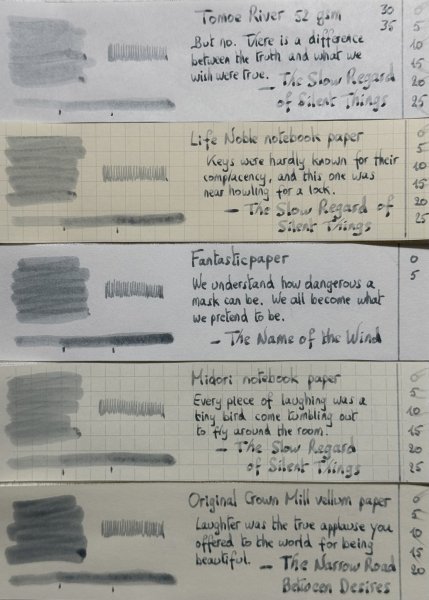 Tomoe River 52 gsm
30
35
But no. There is a difference
between the truth and what we
wish were true.
— The Slow Regard
of Silent Things
0
5
10
15
20
25
Life Noble notebook paper
Keys were hardly known for their
complacency, and this one was
near howling for a lock.
— The Slow Regard of
Silent Things
0
5
10
15
20
25
Fantasticpaper
We understand how dangerous a
mask can be. We all become what
we pretend to be.
— The Name of the Wind
0
5
Midori notebook paper
Every piece of laughing was a
tiny bird come tumbling out
to fly around the room.
— The Slow Regard
of Silent Things
0
5
10
15
20
25
Original Crown Mill vellum paper
Laughter was the true applause you
offered to the world for being
beautiful. — The Narrow Road
Between Desires
0
5
10
15
20